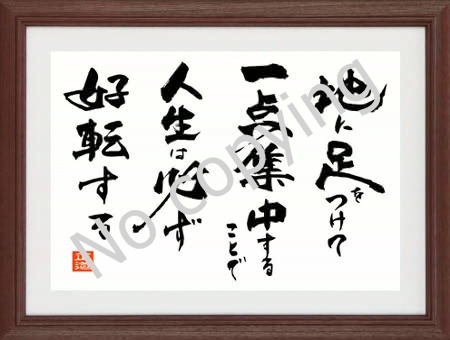 地に足をつけて
一点集中することで
人生は必ず
好転する
No copying